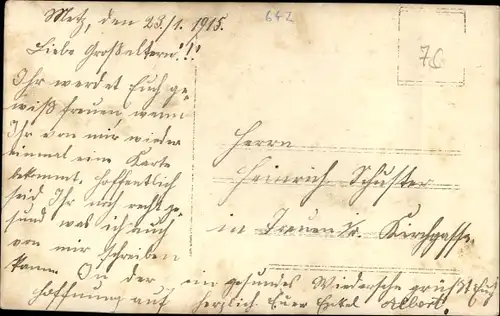 Metz, den 23./1. 1915.
642
76
Liebe Großeltern!!!
Ihr werdet Euch ge-
wiß freuen wenn
Ihr von mir wieder
einmal eine Karte
bekommt. Hoffentlich
seid Ihr noch recht ge-
sund was ich auch
von mir schreiben
kann. In der
Hoffnung auf
ein gesundes Wiedersehn grüßt Euch
herzlich Euer Enkel Albert.
Herrn
Heinrich Schuster
in Kirchgasse